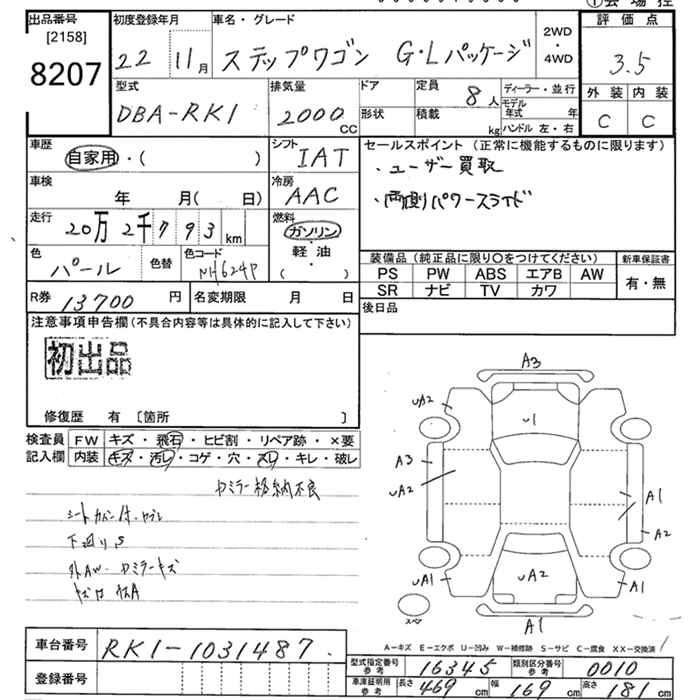 出品番号
[2158]
8207
初度登録年月
22 11月
車名・グレード
ステップワゴン G・Lパッケージ
2WD
・
4WD
評価点
3.5
外装 内装
C C
型式
DBA-RK1
排気量
2000 CC
ドア
形状
定員
8人
積載
kg
ディーラー・並行
モデル年式 年
ハンドル 左・右
車歴
自家用・( )
シフト
IAT
セールスポイント (正常に機能するものに限ります)
・ユーザー買取
・両側パワースライド
車検
年 月( 日)
冷房
AAC
走行
20万2千793 km
燃料
ガソリン
軽油
( )
色
パール
色替
色コード
NH624P
装備品 (純正品に限り〇をつけてください)
新車保証書
PS PW ABS エアB AW
SR ナビ TV カワ
有・無
R券
13700円
名変期限 月 日
後日品
注意事項申告欄(不具合内容等は具体的に記入して下さい)
初出品
修復歴 有 [箇所 ]
検査員
記入欄
FW キズ・飛石・ヒビ割・リペア跡・×要
内装 キズ・汚レ・コゲ・穴・スレ・キレ・破レ
ミラー格納不良
下廻りS
A3
uA2
u1
A3
uA2
A1
A2
uA1
uA2
A1
スペア
A1
A-キズ E-エクボ U-凹み W-補修跡 S-サビ C-腐食 XX-交換済
車台番号
RK1-1031487
登録番号
型式指定番号
参考
16345
類別区分番号
参考
0010
車庫証明用
参考
長さ 469 cm
幅 169 cm
高さ 181 cm